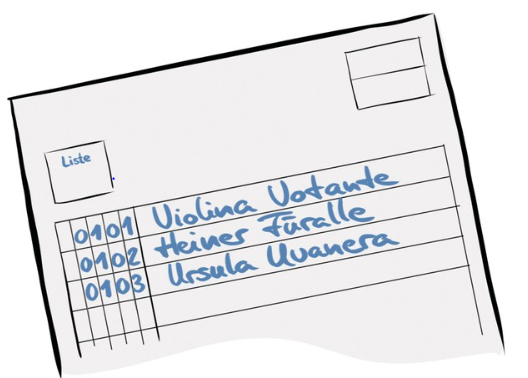 Liste
0101 Violina Votante
0102 Heiner Füralle
0103 Ursula Uvanera